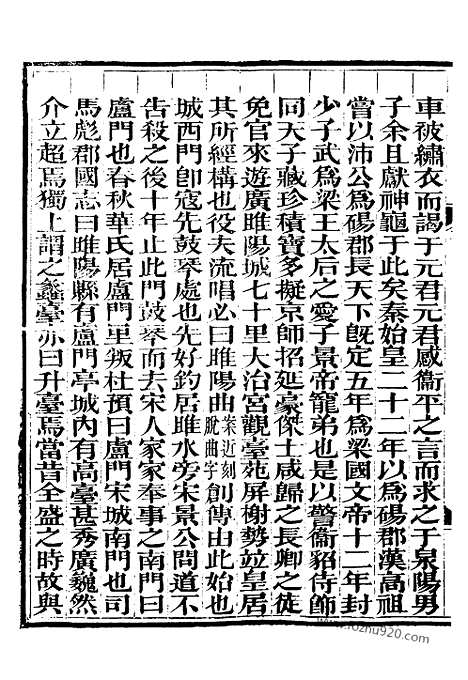 車被繡衣而謁于元君元君感衞平之言而求之于泉陽男
子余且獻神龜于此矣秦始皇二十二年以爲碭郡漢高祖
嘗以沛公爲碭郡長天下旣定五年爲梁國文帝十二年封
少子武爲梁王太后之愛子景帝寵弟也是以警衞貂侍飾
同天子藏珍積寶多擬京師招延豪傑士咸歸之長卿之徒
免官來遊廣睢陽城七十里大治宮觀臺苑屏榭勢竝皇居
其所經構也役夫流唱必曰睢陽曲案近刻脫曲字創傳由此始也
城西門卽寇先鼓琴處也先好釣居睢水旁宋景公問道不
告殺之後十年止此門鼓琴而去宋人家家奉事之南門曰
盧門也春秋華氏居盧門里叛杜預曰盧門宋城南門也司
馬彪郡國志曰睢陽縣有盧門亭城內有高臺甚秀廣巍然
介立超焉獨上謂之蠡臺亦曰升臺焉當昔全盛之時故與
www.fozhu920.com